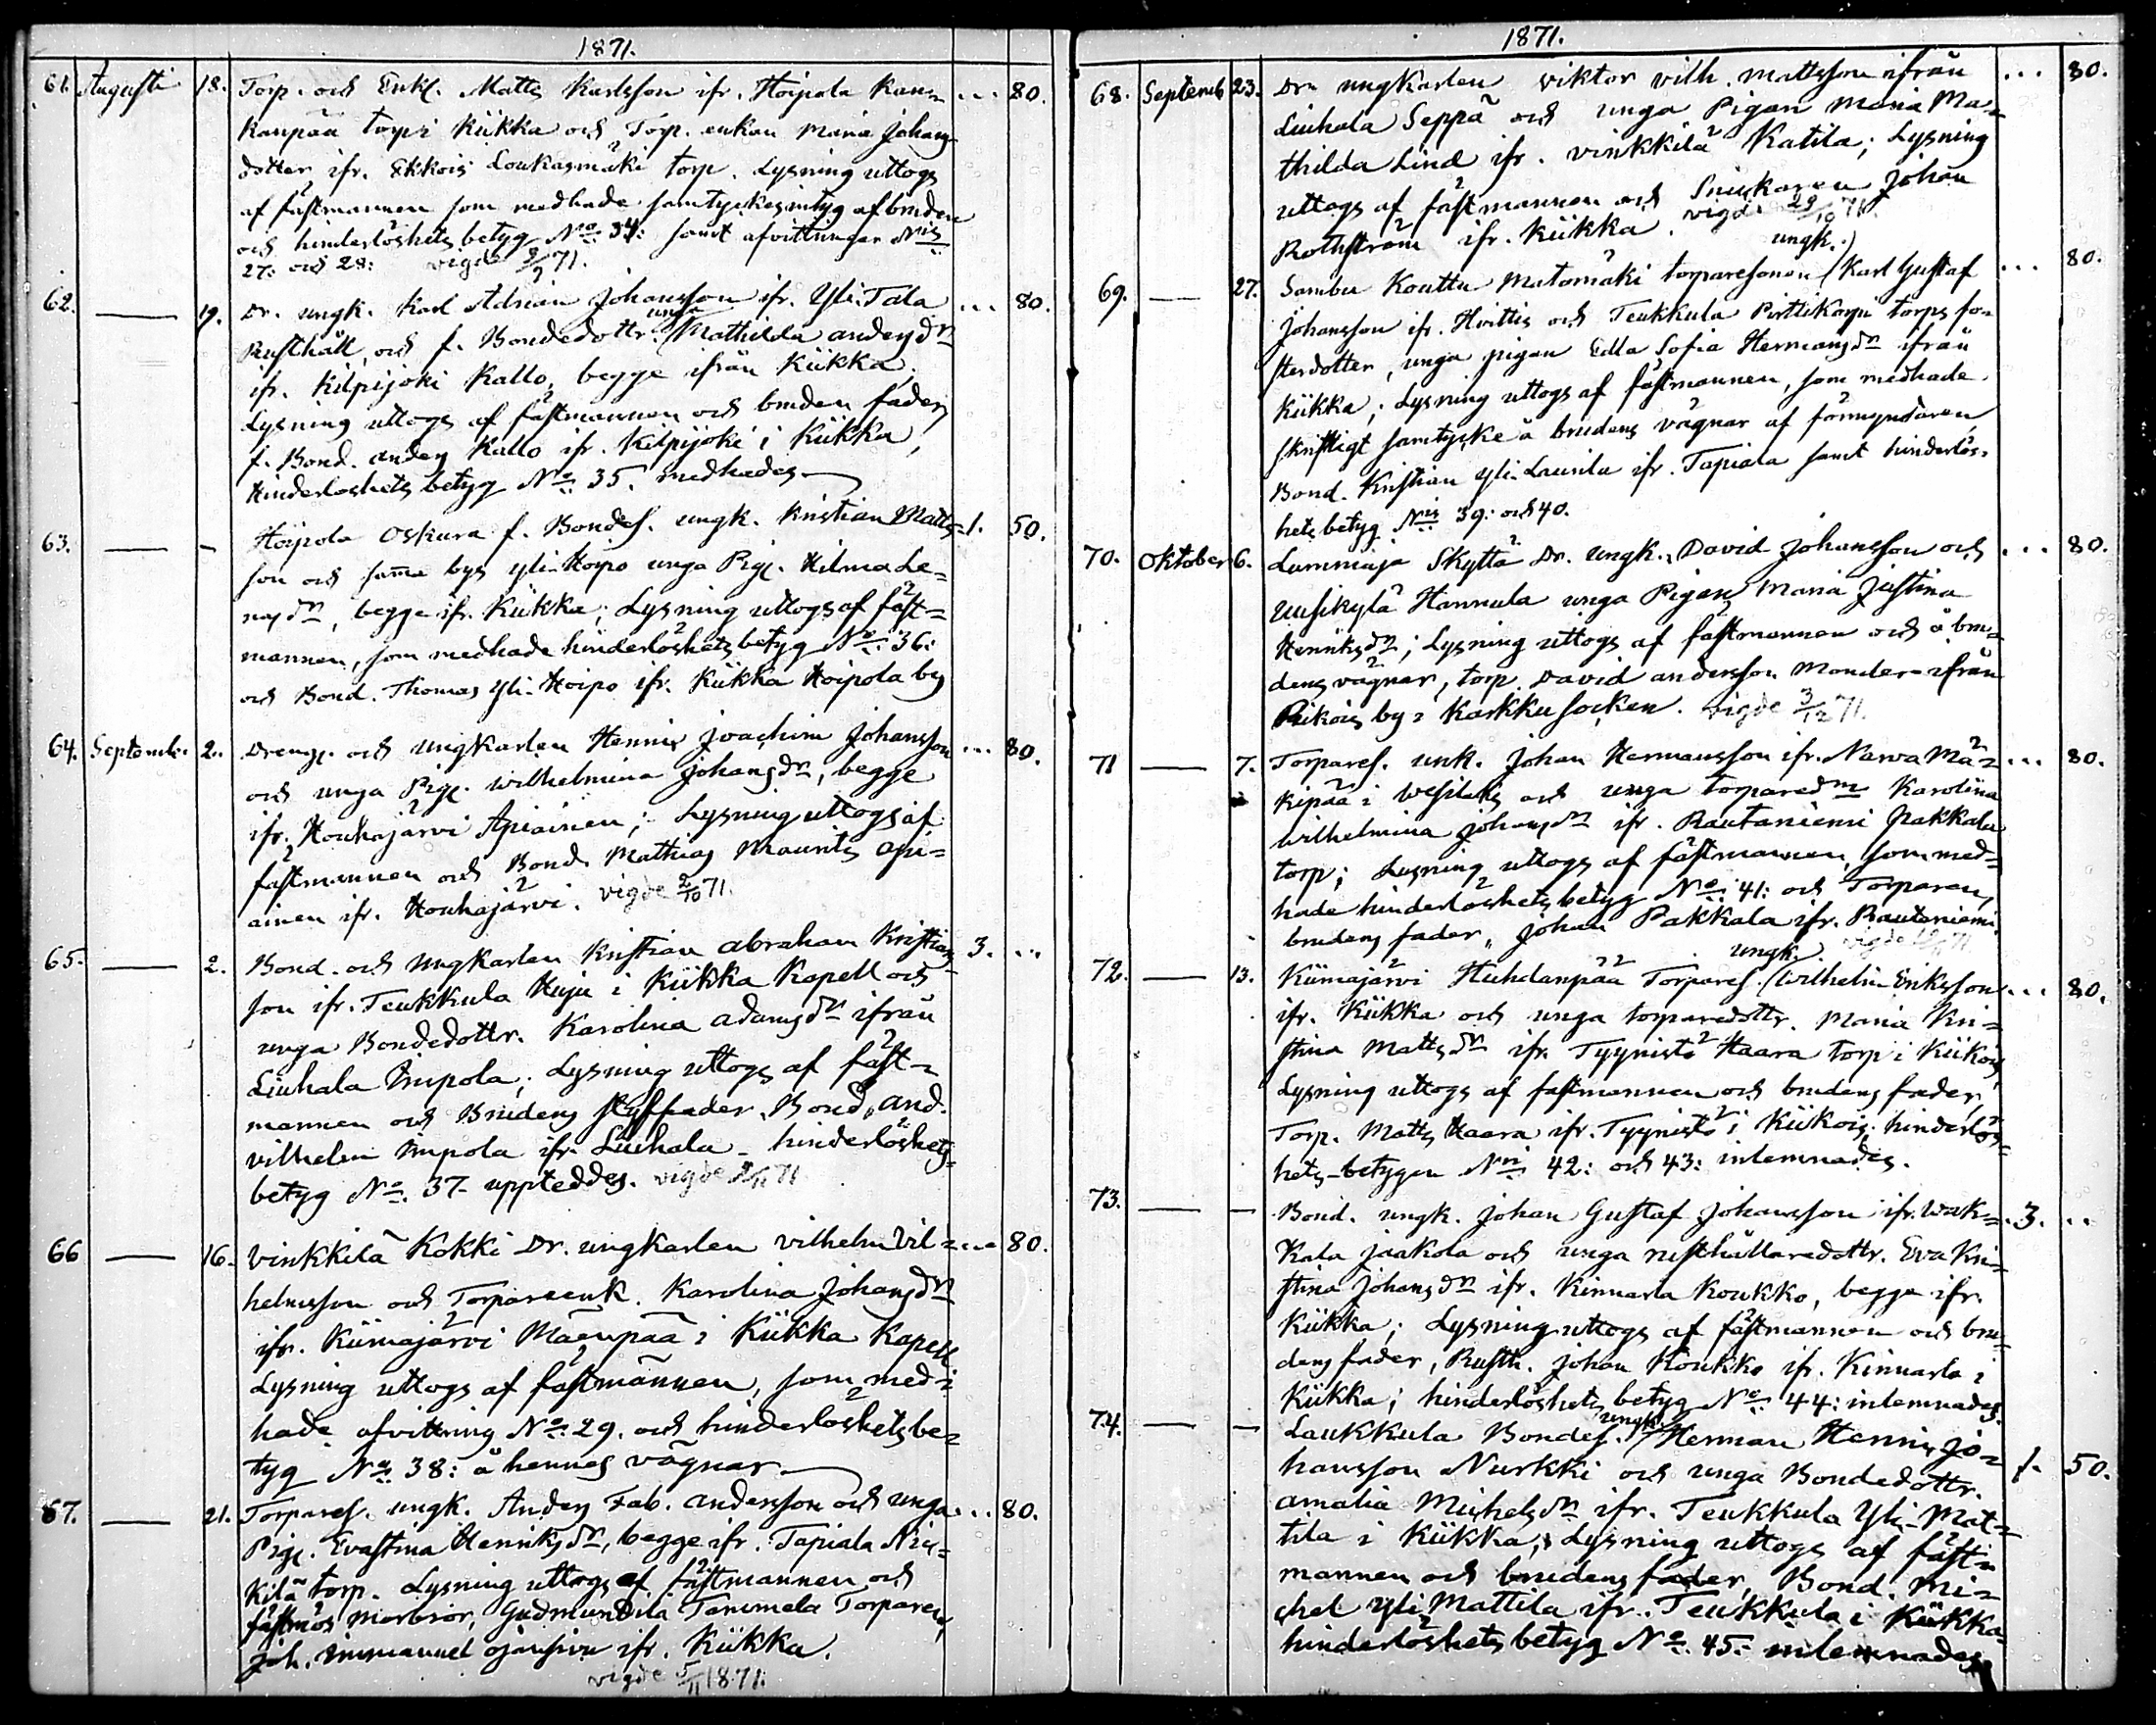 1871.
61. Augusti 18. Torp. och Enkl. Matts Karlsson ifr. Hoipola Kan= ... 80.
kanpää torp i Kiikka och Torp. enkan Maria Johans
dotter ifr. Ekkois Loukasmäki torp. Lysning uttogs
af fästmannen som medhade samtyckesintyg af bruden
och hinderlöshets betyg No: 34: samt afvittringar Nris
27: och 28: vigde 2/9 71.
62. — 19. Dr. ungk. Karl Adrian Johansson ifr. Yli-Tala ... 80.
unga
Rusthåll, och f. Bondedottr. Mathilda andersdr
ifr. Kilpijoki Kallo, begge ifrån Kiikka;
Lysning uttogs af fästmannen och bruden fader,
f. Bond. anders Kallo ifr. Kilpijoki i Kiikka,
Hinderlöshets betyg No: 35. medhades —
63. — - Hoipola Oskura f. Bondes. ungk. Kristian Matts= 1. 50.
son och samma bys Yli-Hoipo unga Pig. Hilma Le=
nasdr, begge ifr. Kiikka; Lysning uttogs af fäst=
mannen, som medhade hinderlöshets betyg No: 36:
och Bond. Thomas Yli-Hoipo ifr. Kiikka Hoipola by
64. Septemb. 2. Dreng. och ungkarlen Hennis Joachim Johansson ... 80.
och unga Pig. Wilhelmina Johansdr, begge
ifr. Houhajärvi Apiainen; Lysning uttogs af
fästmannen och Bond. Mathias Maurits api=
ainen ifr. Houhajärvi. vigde 2/10 71.
65. — 2. Bond. och ungkarlen Kristian abraham Kristians 3. ..
son ifr. Teukkula Huju i Kiikka Kapell och
unga Bondedottr. Karolina adamsdr ifrån
Liuhala Impola; Lysning uttogs af fäst=
mannen och Brudens styffader, Bond. and.
vilhelm Impola ifr. Liuhala - hinderlöshets=
betyg No: 37- uppteddes. vigde /11 71
66 — 16. Vinkkilä Kokki Dr. ungkarlen vilhelm Vil= ... 80.
helmsson och Torpareenk. Karolina Johansdr
ifr. Kiimajärvi Mäenpää i Kiikka Kapell
Lysning uttogs af fästmannen, som med=
hade afvittring No: 29. och hinderlöshetsbe=
tyg No: 38: å hennes vägnar —
67. — 21. Torpares. ungk. Anders Fab. andersson och unga ... 80.
Pig. Evastina Henriksdr, begge ifr. Tapiala Nix=
kilä torp. Lysning uttogs af fästmannen och
fästmös morbror, Gudmundila Tammela Torparen,
Joh. immanuel ojansivu ifr. Kiikka.
vigde 5/11 1871.
1871.
68. Septemb 23. Dr. ungkarlen viktor vilh. mattsson ifrån ... 80.
Liuhala Seppä och unga Pigan Maria Ma=
thilda Lind ifr. vinkkilä Katila; Lysning
uttogs af fästmannen och Snickaren Johan
Rothström ifr. Kiikka. vigde 29/10 71.
ungk.
69. — 27. Sambu Kouttu Matomäki torparesonen Karl Gustaf ... 80.
Johansson ifr. Hvittis och Teukkula Pirttikorpi torps fo=
sterdotter, unga pigan Edla Sofia Hermansdr ifrån
Kiikka; Lysning uttogs af fästmannen, som medhade
skriftligt samtycke å brudens vägnar af förmyndaren,
Bond. Kristian Yli-Laurila ifr. Tapiala samt hinderlös=
hets betyg Nris 39: och 40.
70. Oktober 6. Lammiaja Skyttä Dr. ungk. David Johansson och ... 80.
Uusikylä Hannula unga Pigan Maria Justina
Henriksdr; Lysning uttogs af fästmannen och å bru=
dens vägnar, torp. David andersson Monder ifrån
Riikois by i Karkku socken. vigde 3/12 71.
71 — 7. Torpares. unk. Johan Hermansson ifr. Narva Mä= ... 80.
kipää i Vesilaks och unga torparedr Karolina
Wilhelmina Johansdr ifr. Rautaniemi Pakkala
torp; Lysning uttogs af fästmannen, som med=
hade hinderlöshets betyg No: 41: och Torparen,
brudens fader, Johan Pakkala ifr. Rautaniemi.
ungk. vigde
72. — 13. Kiimajärvi Huhdanpää Torpares. Wilhelm Eriksson ... 80.
ifr. Kiikka och unga torparedottr. Maria Kri=
stina Mattsdr ifr. Tyynistö Haara torp i Kiikois,
Lysning uttogs af fästmannen och brudens fader,
Torp. Matts Haara ifr. Tyynistö i Kiikois; hinderlös=
hets-betygen Nris 42: och 43: inlemnades.
73. — — Bond. ungk. Johan Gustaf Johansson ifr. Wak= 3. ..
kala Jaakola och unga rusthållaredottr. Eva Kri=
stina Johansdr ifr. Kinnarla Koukko, begge ifr.
Kiikka; Lysning uttogs af fästmannen och bru=
dens fader, Rusth. Johan Koukko ifr. Kinnarla i
Kiikka; hinderlöshets betyg No: 44: inlemnades.
ungk.
74. — — Laukkula Bondes. Herman Hennis Jo= 1. 50.
hansson Nurkki och unga Bondedottr.
amalia Michelsdr ifr. Teukkula Yli-Mat=
tila i Kiikka; Lysning uttogs af fäst=
mannen och brudens fader, Bond. Mi=
chel Yli Mattila ifr. Teukkula i Kiikka
hinderlöshets betyg No: 45- inlemnades